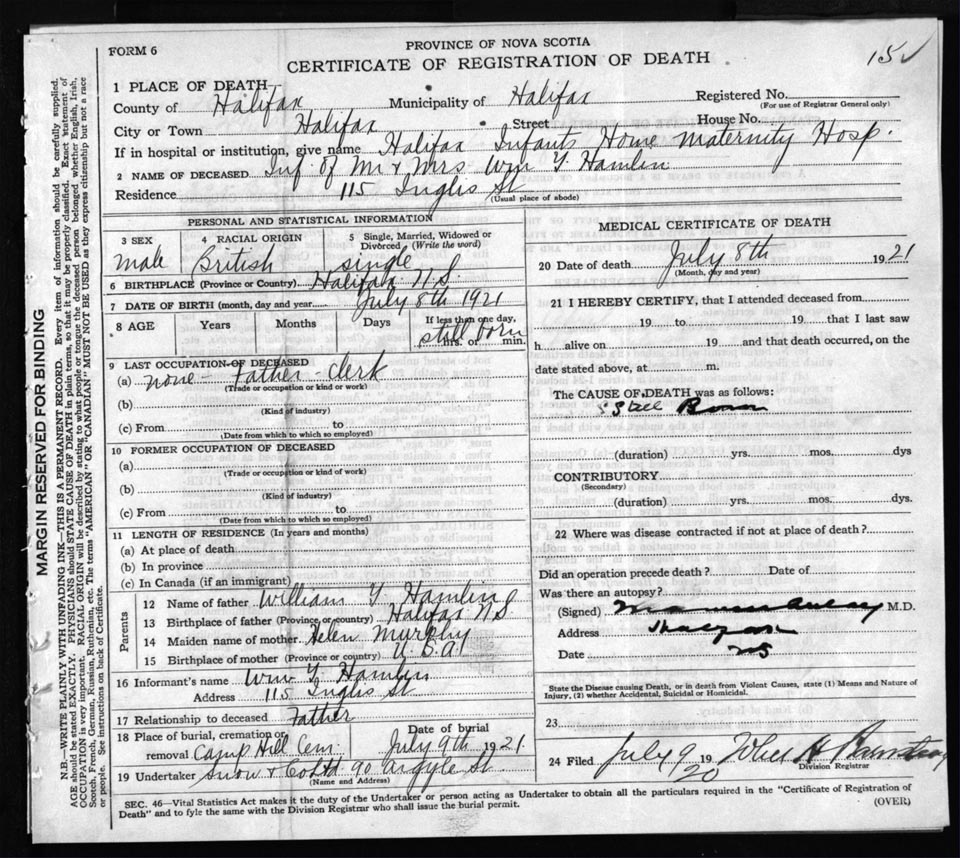 FORM 6
PROVINCE OF NOVA SCOTIA
CERTIFICATE OF REGISTRATION OF DEATH
15
1 PLACE OF DEATH
County of Halifax Municipality of Halifax Registered No.
(For use of Registrar General only)
City or Town Halifax Street House No.
If in hospital or institution, give name Halifax Infants Home Maternity Hosp.
2 NAME OF DECEASED Inf of Mr & Mrs Wm Y Hamlin
Residence 115 Inglis St
(Usual place of abode)
PERSONAL AND STATISTICAL INFORMATION
3 SEX male
4 RACIAL ORIGIN British
5 Single, Married, Widowed or Divorced (Write the word) single
6 BIRTHPLACE (Province or Country) Halifax N.S.
7 DATE OF BIRTH (month, day and year) July 8th 1921
8 AGE Years Months Days If less than one day, hrs. or min. still born
9 LAST OCCUPATION OF DECEASED
(a) none - Father - clerk
(Trade or occupation or kind or work)
(b)
(Kind of industry)
(c) From to
(Date from which to which so employed)
10 FORMER OCCUPATION OF DECEASED
(a)
(Trade or occupation or kind of work)
(b)
(Kind of industry)
(c) From to
(Date from which to which so employed)
11 LENGTH OF RESIDENCE (In years and months)
(a) At place of death
(b) In province
(c) In Canada (if an immigrant)
Parents
12 Name of father William Y Hamlin
13 Birthplace of father (Province or country) Halifax N S
14 Maiden name of mother Helen Murphy
15 Birthplace of mother (Province or country) U.S.A.
16 Informant's name Wm Y Hamlin
Address 115 Inglis St
17 Relationship to deceased Father
18 Place of burial, cremation or removal Camp Hill Cem.
Date of burial July 9th 1921
19 Undertaker Snow & Co Ltd 90 Argyle St
(Name and Address)
MEDICAL CERTIFICATE OF DEATH
20 Date of death July 8th 1921
(Month, day and year)
21 I HEREBY CERTIFY, that I attended deceased from
19 to 19 that I last saw
h alive on 19 and that death occurred, on the
date stated above, at m.
The CAUSE OF DEATH was as follows:
Still Born
(duration) yrs. mos. dys
CONTRIBUTORY
(Secondary)
(duration) yrs. mos. dys.
22 Where was disease contracted if not at place of death?
Did an operation precede death? Date of
Was there an autopsy?
(Signed) M.D.
Address Halifax
Date NS
State the Disease causing Death, or in death from Violent Causes, state (1) Means and Nature of
Injury, (2) whether Accidental, Suicidal or Homicidal.
23
24 Filed July 9 19 20
Division Registrar
SEC. 46—Vital Statistics Act makes it the duty of the Undertaker or person acting as Undertaker to obtain all the particulars required in the "Certificate of Registration of
Death" and to fyle the same with the Division Registrar who shall issue the burial permit.
(OVER)
MARGIN RESERVED FOR BINDING
N.B.—WRITE PLAINLY WITH UNFADING INK—THIS IS A PERMANENT RECORD. Every item of information should be carefully supplied.
AGE should be stated EXACTLY. PHYSICIANS should STATE CAUSE OF DEATH in plain terms, so that it may be properly classified. Exact statement of
OCCUPATION is very important. RACIAL ORIGIN will be described by stating to what people or tongue the deceased person belonged whether English, Irish,
Scotch, French, German, Russian, Ruthenian, etc. The terms "AMERICAN" OR "CANADIAN" MUST NOT BE USED as they express citizenship but not a race
or people. See instructions on back of Certificate.